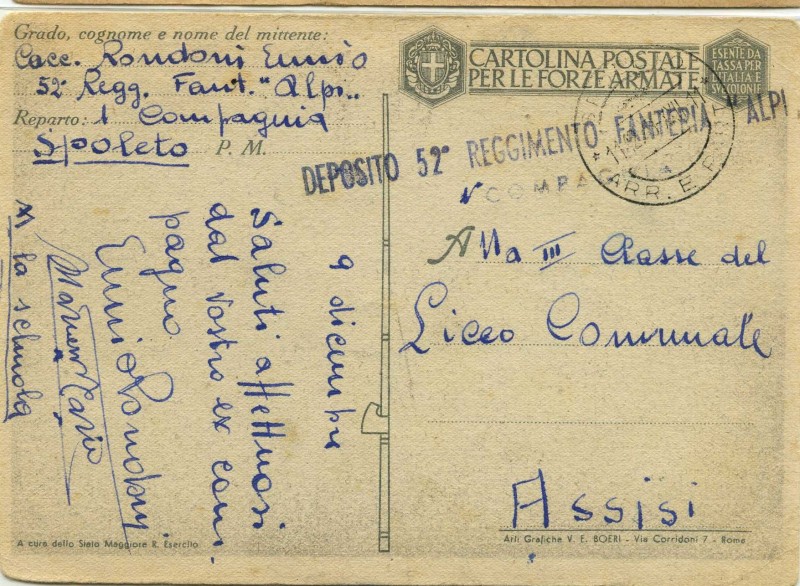 Grado, cognome e nome del mittente:
Cacc. Rondoni Ennio
52° Regg. Fant. "Alpi"
Reparto: 1 Compagnia
Spoleto P. M.
CARTOLINA POSTALE
PER LE FORZE ARMATE
ESENTE DA
TASSA PER
L'ITALIA E
SVE COLONIE
DEPOSITO 52° REGGIMENTO FANTERIA "ALPI"
COMPA
ARR. E
Alla III Classe del
Liceo Comunale
Assisi
9 dicembre
Saluti affettuosi
dal vostro ex com
pagno
Ennio Rondoni
la scuola
A cura dello Stato Maggiore R. Esercito
Arti Grafiche V. E. BOERI - Via Corridoni 7 - Roma